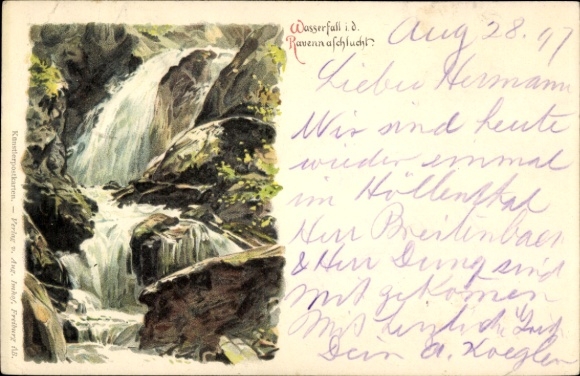 Wasserfall i. d.
Ravennaschlucht.
Aug 28. 97
Lieber Hermann
Wir sind heute
wieder einmal
im Höllenthal
Herr Breitenbach
& Herr Dung sind
mit gekomen
Mit
Dein A. Koegler
Künstlerpostkarten. — Verlag v. Aug. Freiburg i/B.